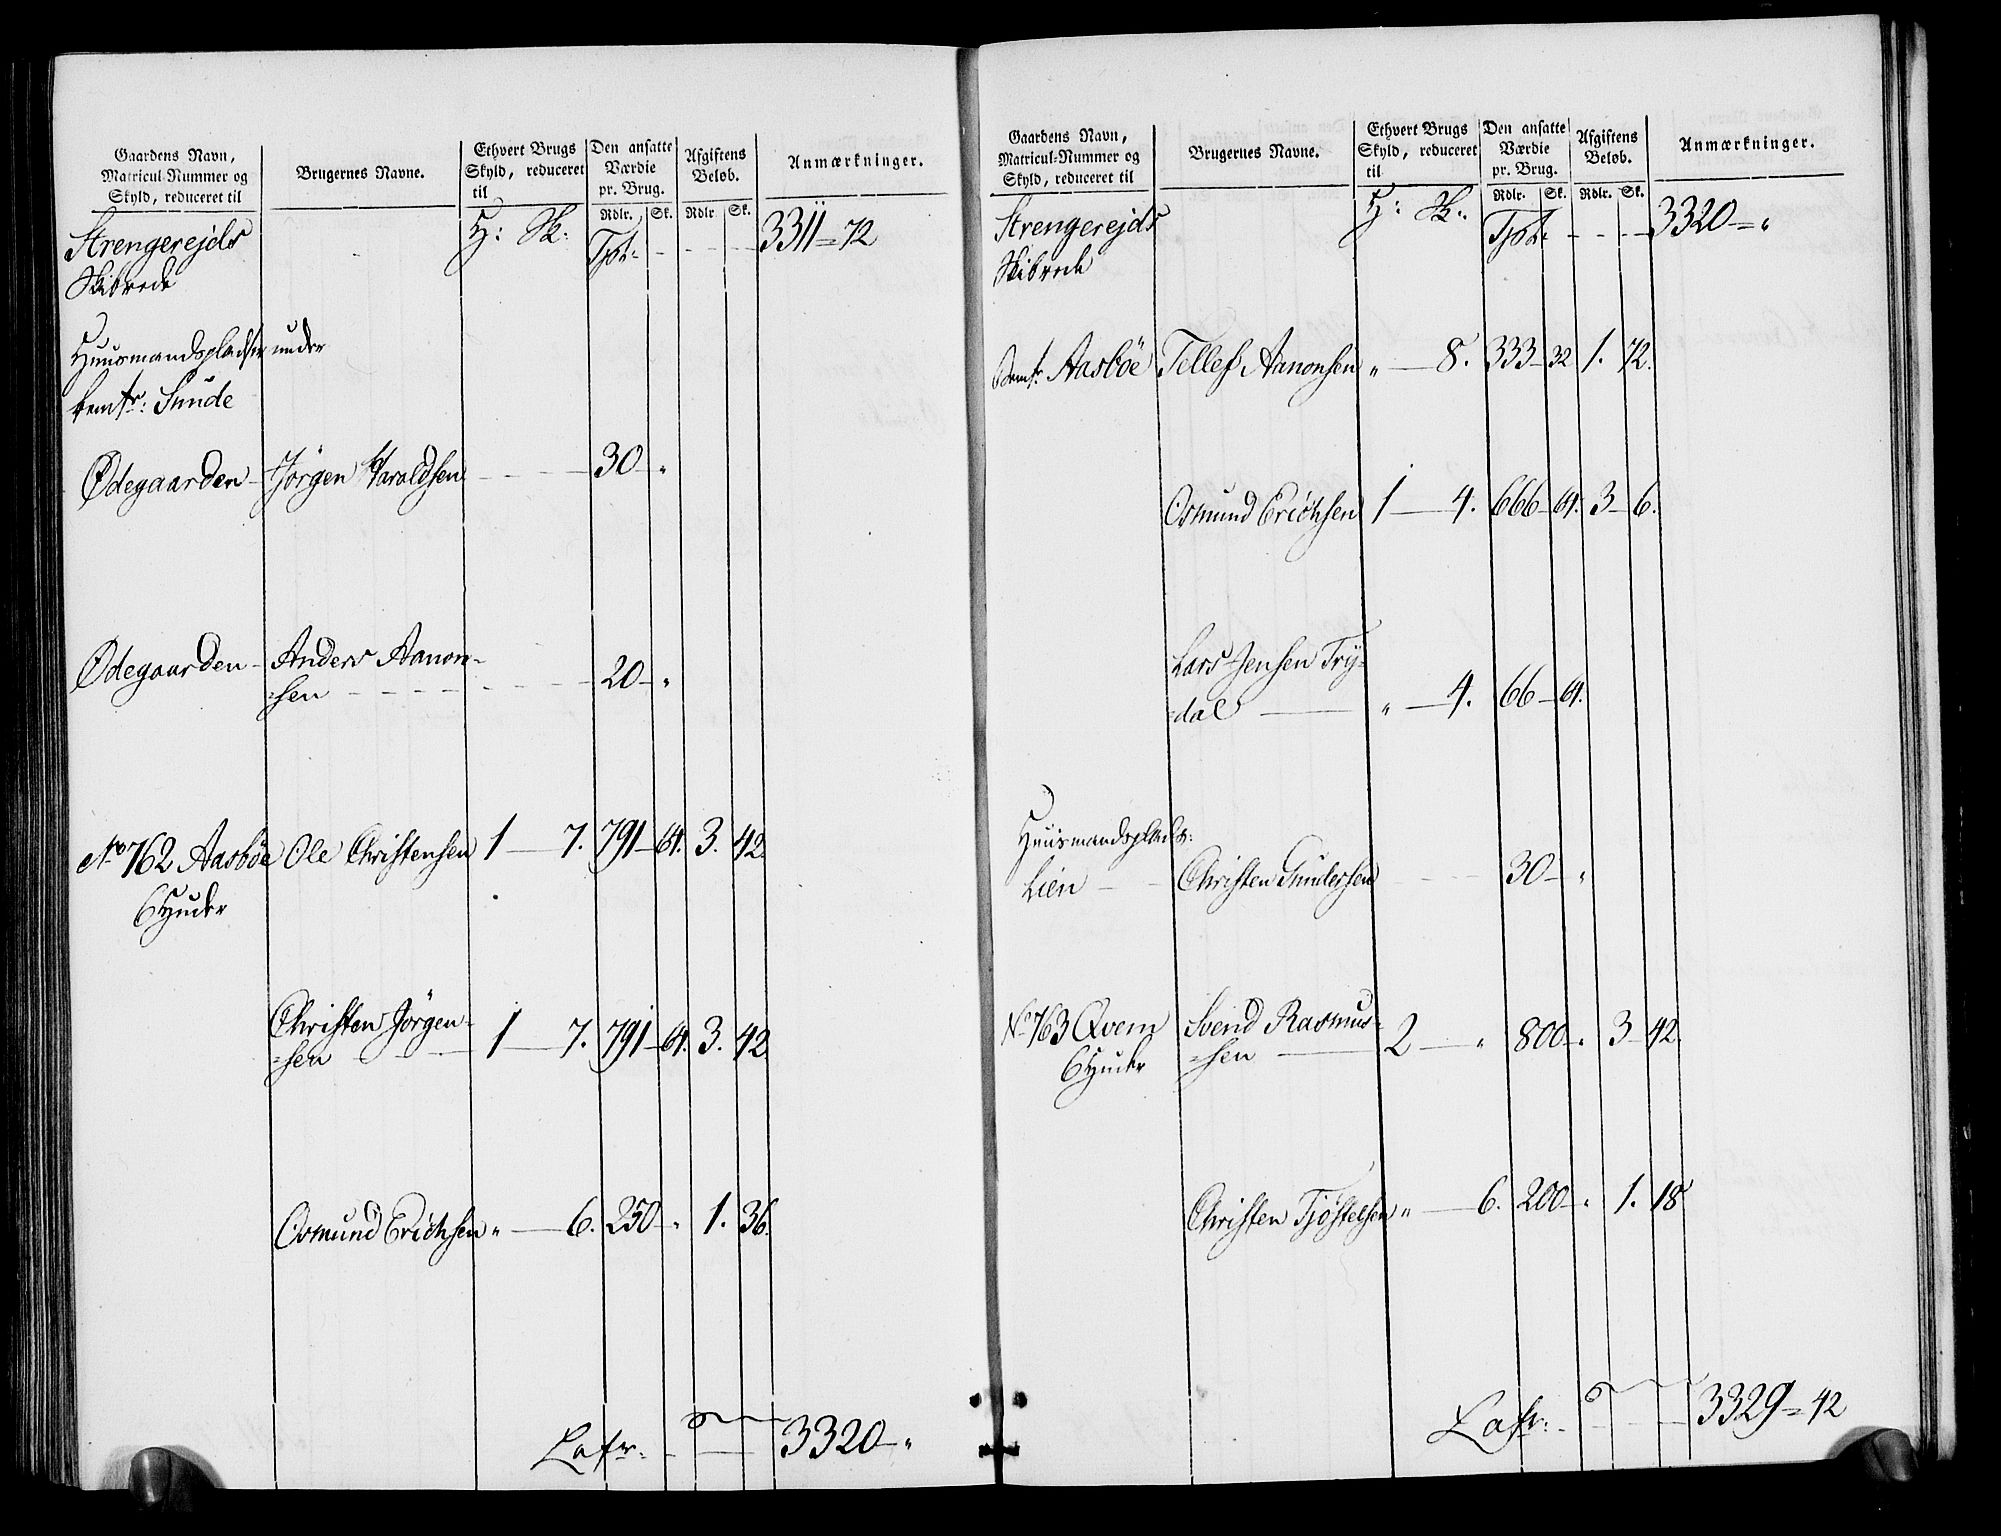 Gaardens Navn,
Matricul-Nummer og
Skyld, reduceret til
Brugernes Navne.
Ethvert Brugs
Skyld, reduceret
til
Den ansatte
Værdie
pr. Brug.
Rdlr. Sk.
Afgiftens
Beløb.
Rdlr Sk.
Anmærkninger.
Strengerejds H: Sk: Tpt: 3311 = 72
Skibrede
Huusmandspladser under
bemte: Sunde
Ødegaarden Jörgen Haraldsen 30 "
Ødegaarden Anders Aanon-
=sen 20 "
No 762 Aasböe Ole Christensen 1 7. 791 64. 3. 42.
6 Huder
Christen Jörgen-
=sen 1 7. 791 64. 3. 42
Osmund Erichsen " 6. 250 " 1. 36.
Lafr: 3320 "
Gaardens Navn,
Matricul-Nummer og
Skyld, reduceret til
Brugernes Navne.
Ethvert Brugs
Skyld, reduceret
til
Den ansatte
Værdie
pr. Brug.
Rdlr. Sk.
Afgiftens
Beløb.
Rdlr. Sk.
Anmærkninger.
Strengerejds H: Sk: Tpt: 3320 = "
Skibrede
Aasböe Tellef Aanonsen " 8. 333 32 1. 72.
Osmund Erichsen 1 4. 666 64. 3 6.
Lars Jensen Try-
=dal " 4. 66 64.
Huusmandsplads:
Lien Christen Gundersen 30 "
No 763 Qvem Svend Rasmus-
6 Huder =sen 2 " 800 " 3 42.
Christen Tjöstelsen " 6. 200 " 1. 18
Lafr: 3329 = 42